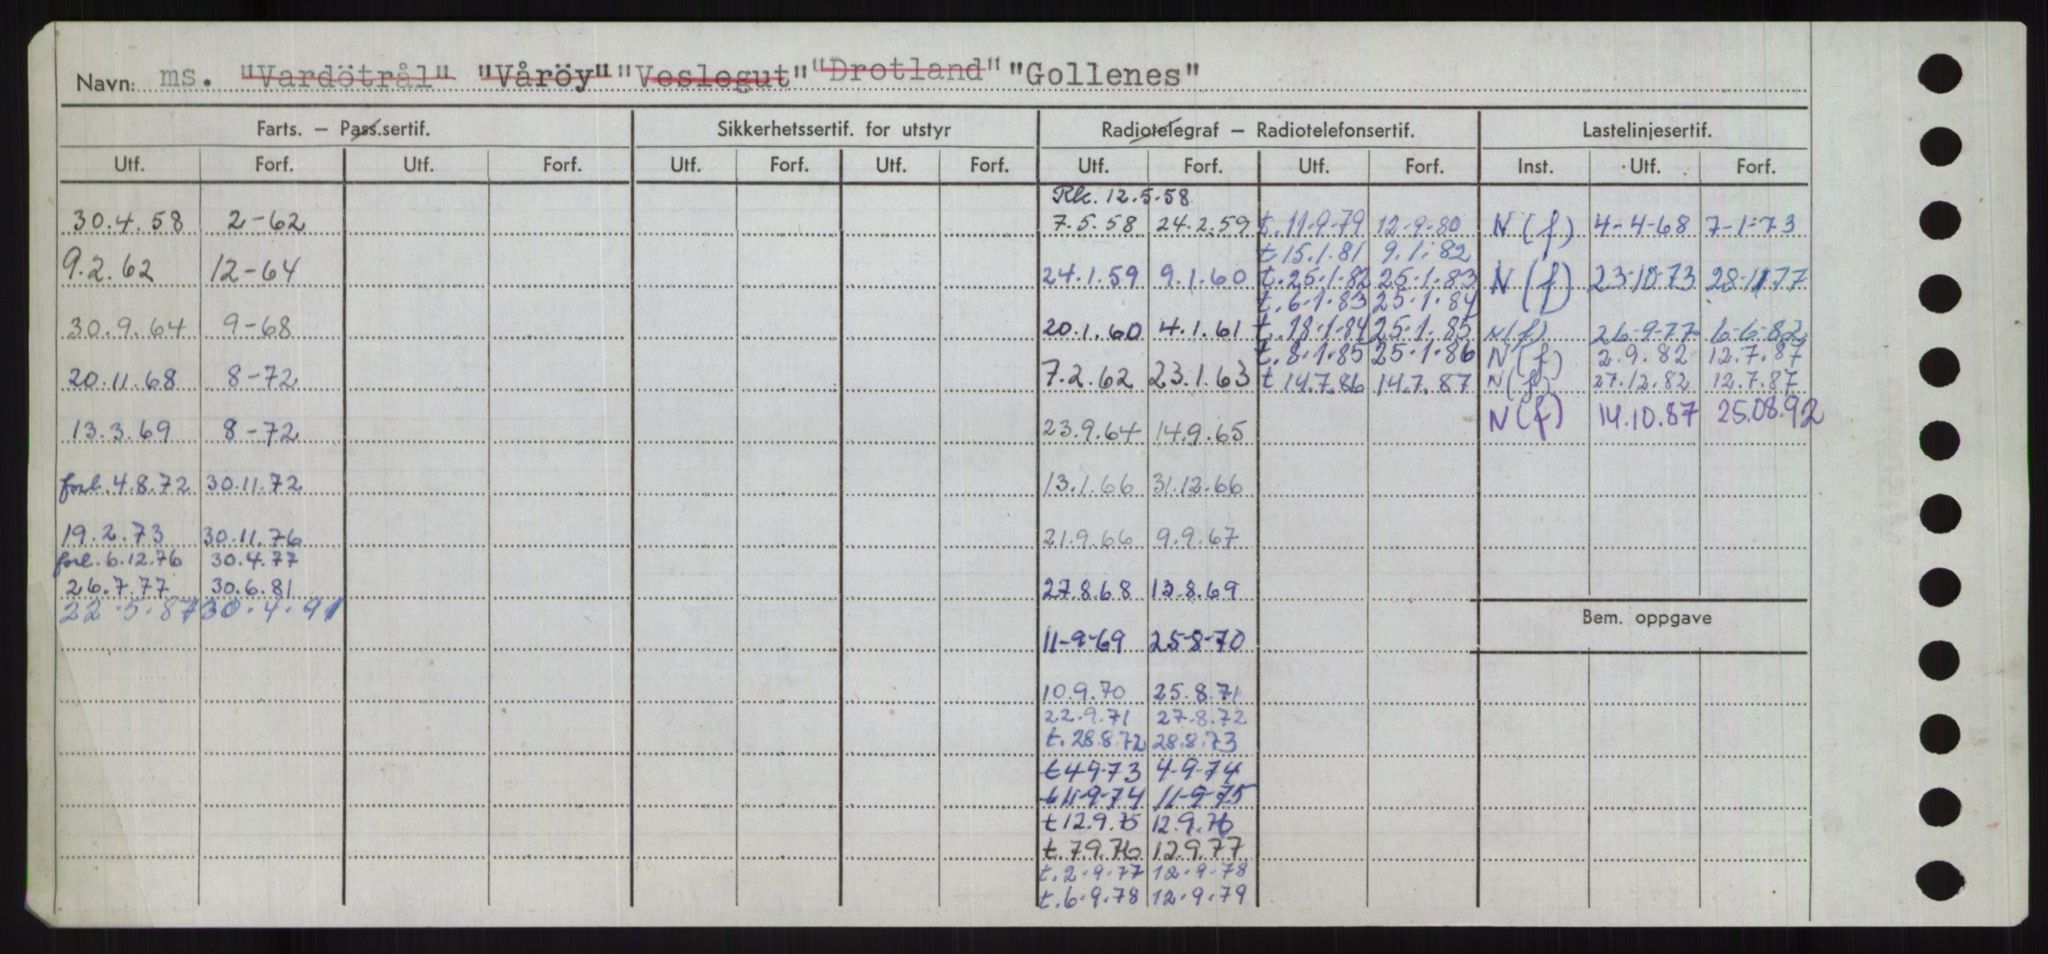 Navn: ms. "Vardötrål" "Våröy" "Veslegut" "Drotland" "Gollenes"
Farts. — Pass.sertif. Sikkerhetssertif. for utstyr Radiotelegraf — Radiotelefonsertif. Lastelinjesertif.
Utf. Forf. Utf. Forf. Utf. Forf. Utf. Forf. Utf. Forf. Utf. Forf. Inst. Utf. Forf.
Rk. 12.5.58
30.4.58 2-62 7.5.58 24.2.59 t.11.9.79 12.9.80 N(f) 4-4-68 7-1-73
t 15.1.81 9.1.82
9.2.62 12-64 24.1.59 9.1.60 t.25.1.82 25.1.83 N(f) 23.10.73 28.11.77
t.6.1.83 25.1.84
30.9.64 9-68 20.1.60 4.1.61 t.18.1.84 25.1.85 N(f) 26-9-77 6-6-82
t.8.1.85 25.1.86 N(f) 2.9.82 12.7.87
20.11.68 8-72 7.2.62 23.1.63 t 14.7.86 14.7.87 N(f) 27.12.82 12.7.87
N(f) 14.10.87 25.08.92
13.3.69 8-72 23.9.64 14.9.65
forl.4.8.72 30.11.72 13.1.66 31.12.66
19.2.73 30.11.76 21.9.66 9.9.67
forl.6.12.76 30.4.77
26.7.77 30.6.81 27.8.68 13.8.69
22.5.87 30.4.91
Bem. oppgave
11-9-69 25-8-70
10.9.70 25.8.71
22.9.71 27.8.72
t.28.8.72 28.8.73
t 4-9-73 4-9-74
t 11-9-74 11-9-75
t 12.9.75 12.9.76
t.7.9.76 12.9.77
t.2-9-77 12-9-78
t.6.9.78 12.9.79